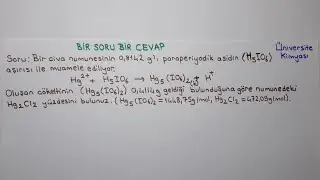 BİR SORU BİR CEVAP
Üniversite
Kimyası
Soru: Bir civa numunesinin 0,8142 g'ı, paraperiyodik asidin (H₅IO₆)
aşırısı ile muamele ediliyor.
Hg²⁺ + H₅IO₆ → Hg₅(IO₆)₂ + H⁺
Oluşan çökeltinin (Hg₅(IO₆)₂) 0,4114 g geldiği bulunduğuna göre numunedeki
Hg₂Cl₂ yüzdesini bulunuz. (Hg₅(IO₆)₂ = 1448,75 g/mol, Hg₂Cl₂ = 472,09 g/mol).